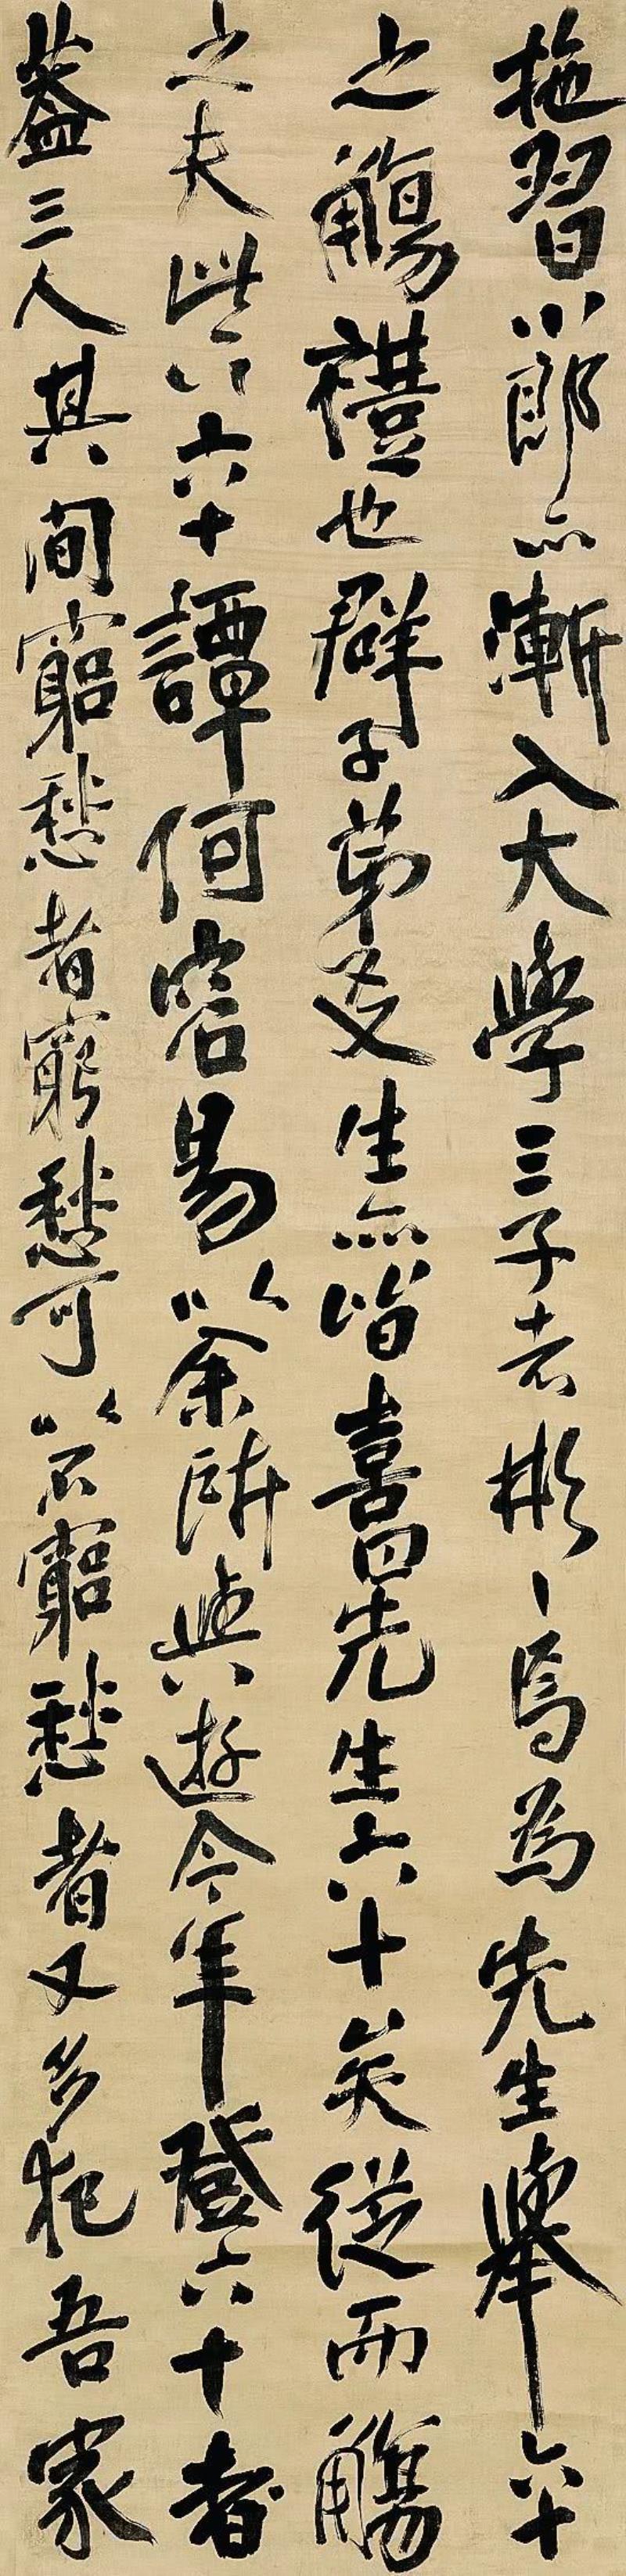 拖習小郎亦漸入大學三子者彬〻焉為先生舉六十
之觴禮也群子弟及生亦皆喜曰先生六十矣從而觴
之夫此六十譚何容易以余所與遊今年登六十者
蓋三人其間窮愁者窮愁可以不窮愁者又多犯吾家